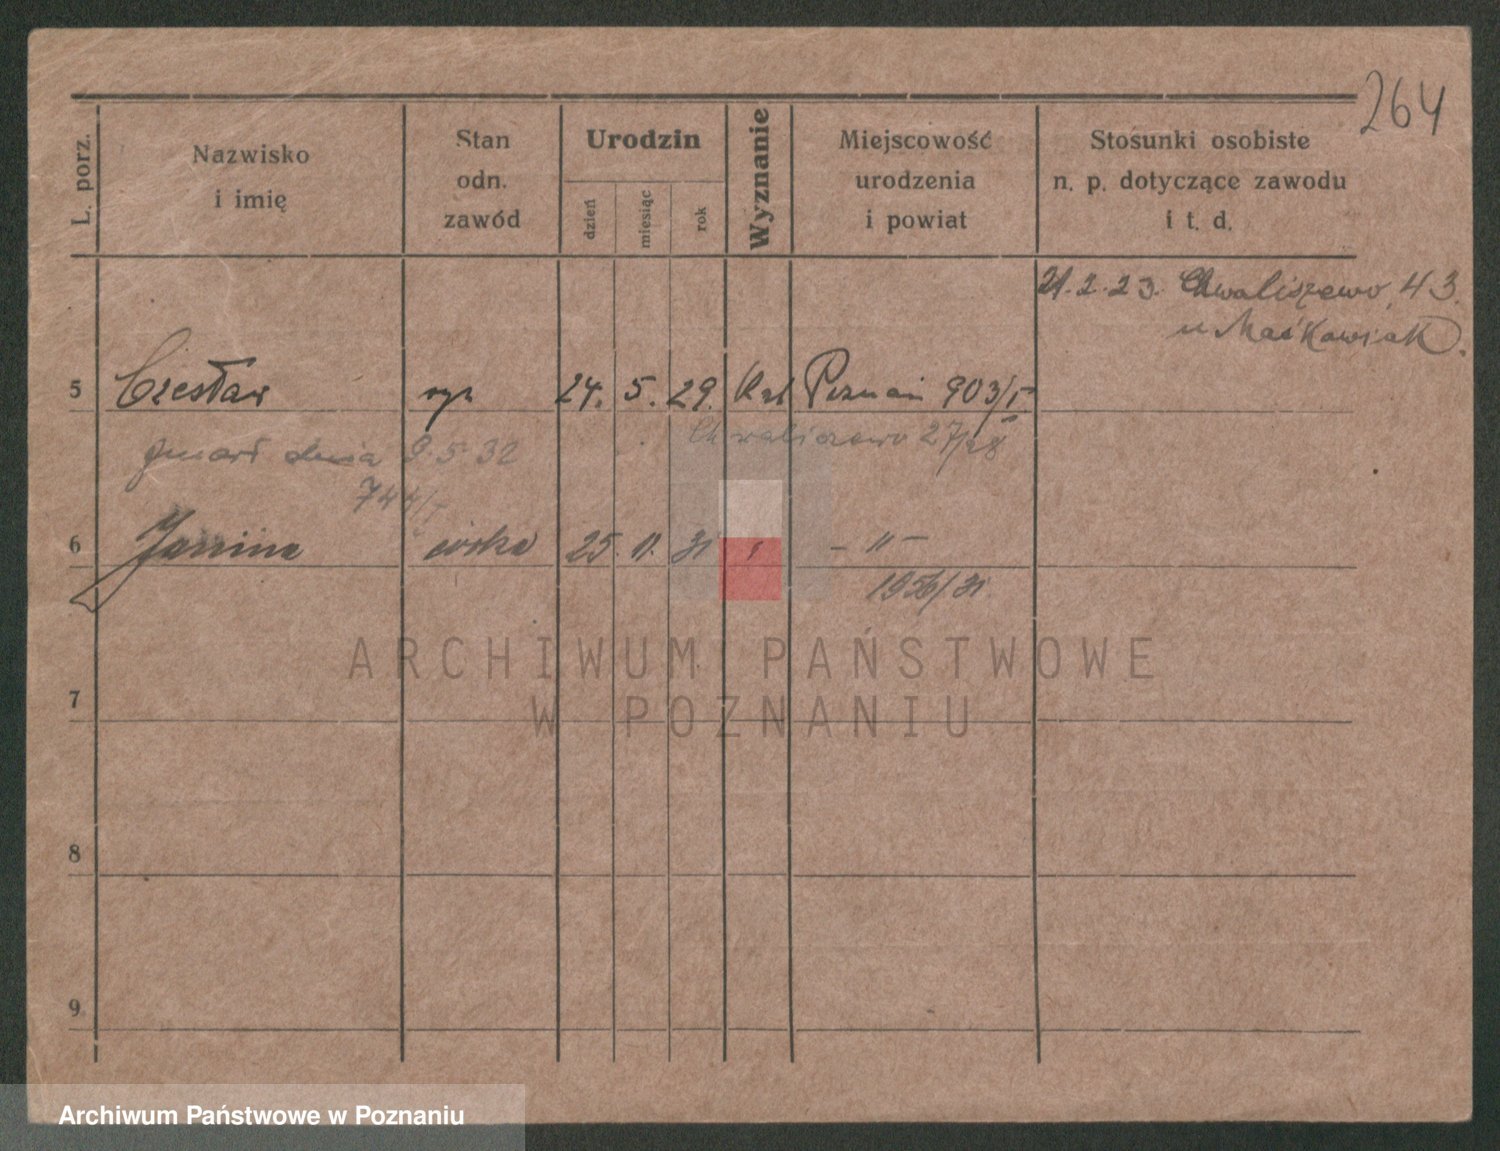 264
L. porz.
Nazwisko
i imię
Stan
odn.
zawód
Urodzin
dzień
miesiąc
rok
Wyznanie
Miejscowość
urodzenia
i powiat
Stosunki osobiste
n. p. dotyczące zawodu
i t. d.
21. 2. 23. Chwaliszewo, 43.
u Maćkowiak.
5 Czesław syn 24. 5. 29. Kat Poznań 903/I
Chwaliszewo 27/28
zmarł dnia 9. 5. 32
744/I
6 Janina córka 25. 11. 31 " – " –
1956/31
ARCHIWUM PAŃSTWOWE
W POZNANIU
7
8
9
Archiwum Państwowe w Poznaniu